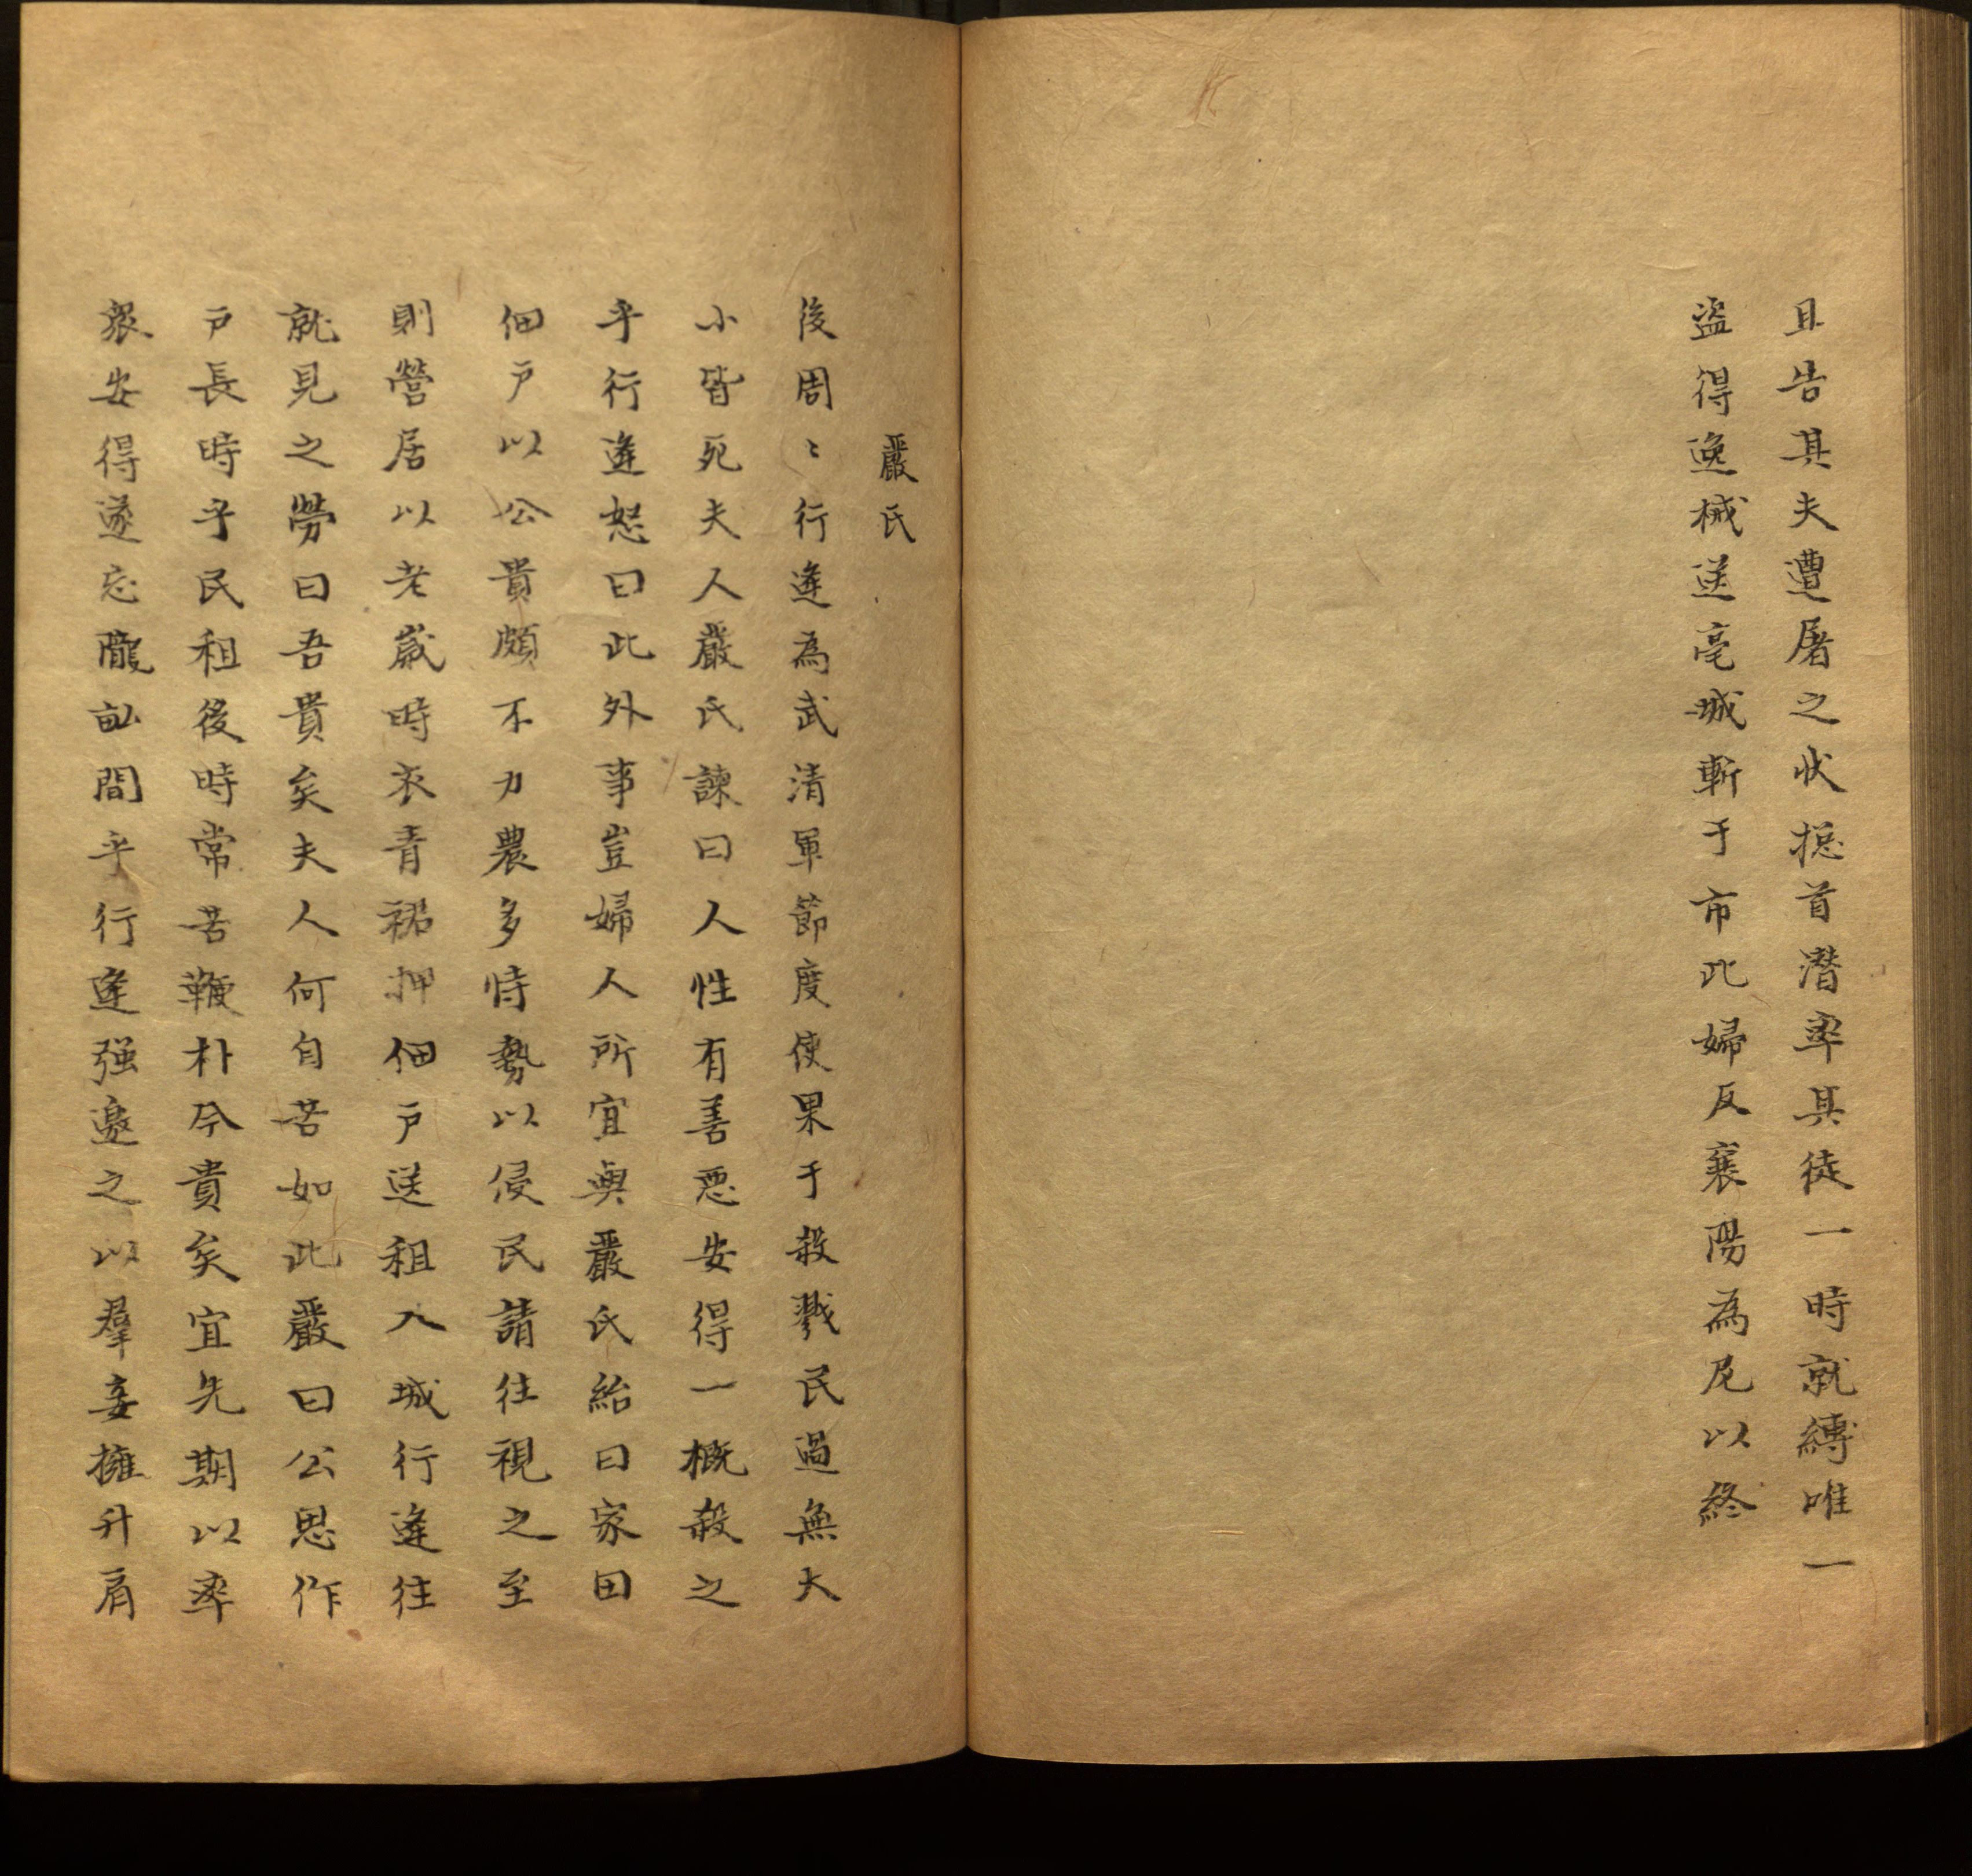 且告其夫遭屠之状揔首潛率其徒一時就縛唯一
盜得逸械送亳城斬于市此婦反襄陽為尼以終
嚴氏
後周〻行逢為武清軍節度使果于殺戮民過無大
小皆死夫人嚴氏諫曰人性有善惡安得一概殺之
乎行逢怒曰此外事豈婦人所宜與嚴氏紿曰家田
佃戸以公貴頗不力農多恃勢以侵民請往視之至
則營居以老歲時衣青裙押佃戸送租入城行逢往
就見之勞曰吾貴矣夫人何自苦如此嚴曰公思作
戸長時乎民租後時常苦鞭朴今貴矣宜先期以率
衆安得遂忘隴畝間乎行逢强邀之以羣妾擁升肩